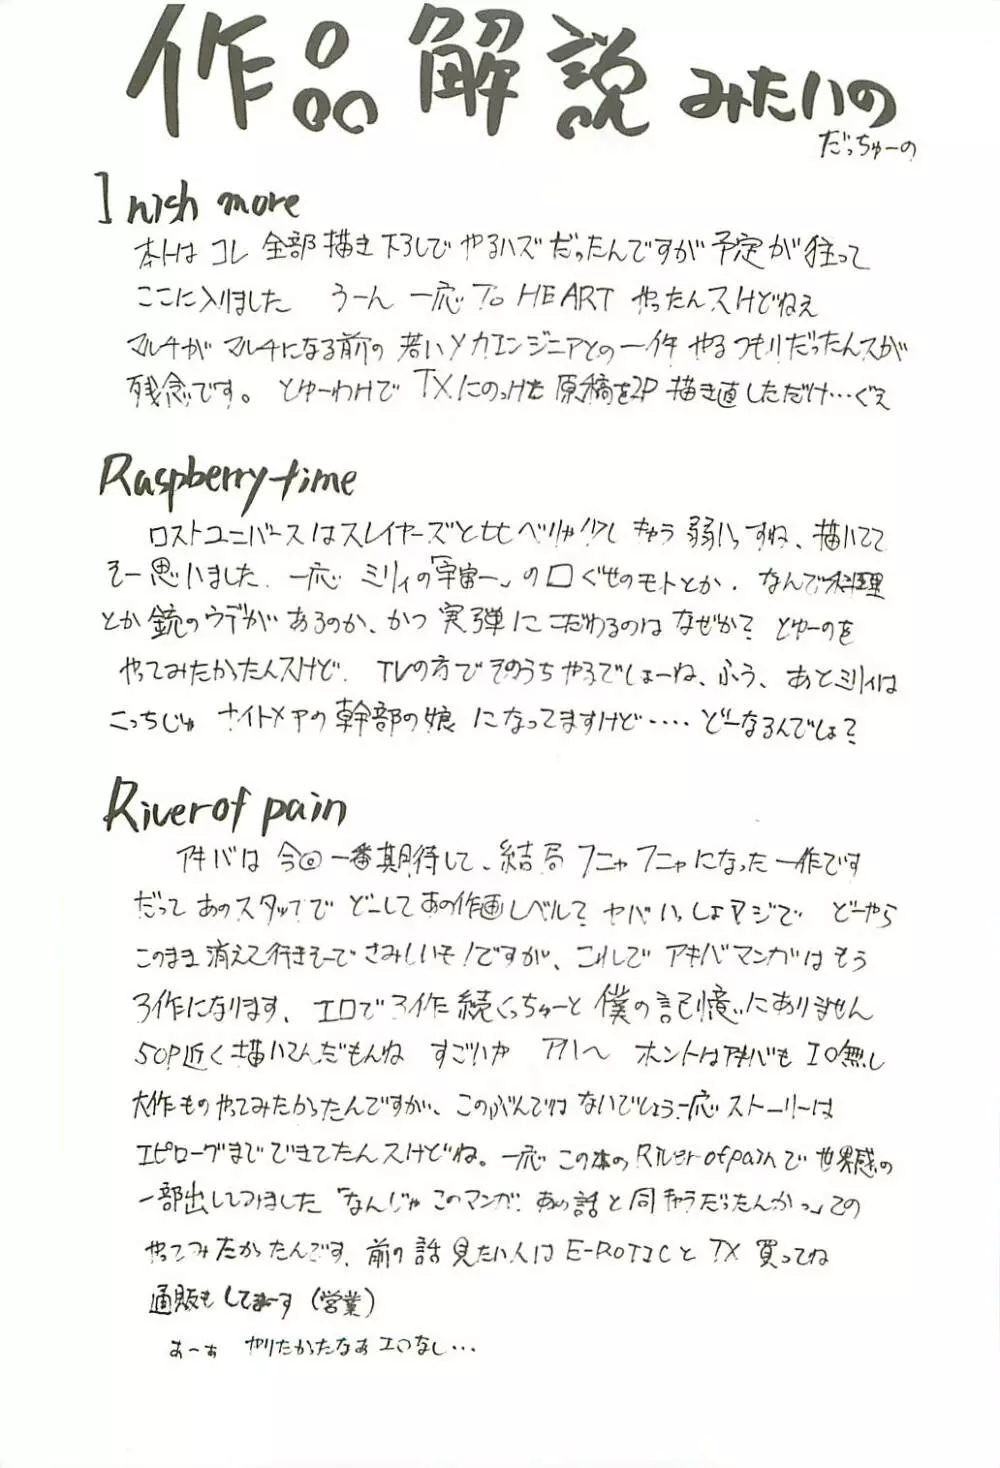 作品解説 みたいの
だっちゅーの
I wish more
本トは コレ 全部 描き下ろしで やるハズだったんですが 予定が狂って
ここに入りました うーん 一応 To HEART やったんスけどねぇ
マルチが マルチになる前の 若いメカエンジニアとの一件 やるつもりだったんスが
残念です。 とゆーわけで TXにのっけた 原稿を2P 描き直しただけ…ぐぇ
Raspberry time
ロストユニバースはスレイヤーズと比べりゃ 少し キャラ 弱いっすね、描いてて
そー思いました. 一応 ミリィの「宇宙一」の口ぐせのモトとか. なんで料理
とか 銃のウデがあるのか、かつ 実弾に こだわるのは なぜか? とゆーのを
やってみたかったんスけど. TVの方で そのうち やるでしょーね、ふう、あと ミリィは
こっちじゃ ナイトメアの幹部の娘 になってますけど‥‥ どーなるんでしょ?
River of pain
アキバは 今回 一番期待して、結局 フニャフニャになった 一作です
だって あのスタッフで どーして あの作画レベル? ヤバいっしょ マジで どーやら
このまま 消えて行きそーで さみしいそ!ですが、これで アキバマンガは もう
3作になります、エロで 3作 続くっちゅーと 僕の記憶にありません
50P近く 描いてんだもんね すごいか アハハ ホントは アキバも エロ無し
大作もの やってみたかったんですが、このぶんでは ないでしょう 一応 ストーリーは
エピローグまで できてたんスけどね。 一応 この本の River of painで 世界感の
一部出しつつました 「なんじゃ このマンガ. あの話と 同キャラだったんかっ」ての
やってみたかったんです、前の話 見たい人は E-ROTIC と TX 買ってね
通販も してまーす (営業)
あーぁ やりたかったなぁ エロなし…